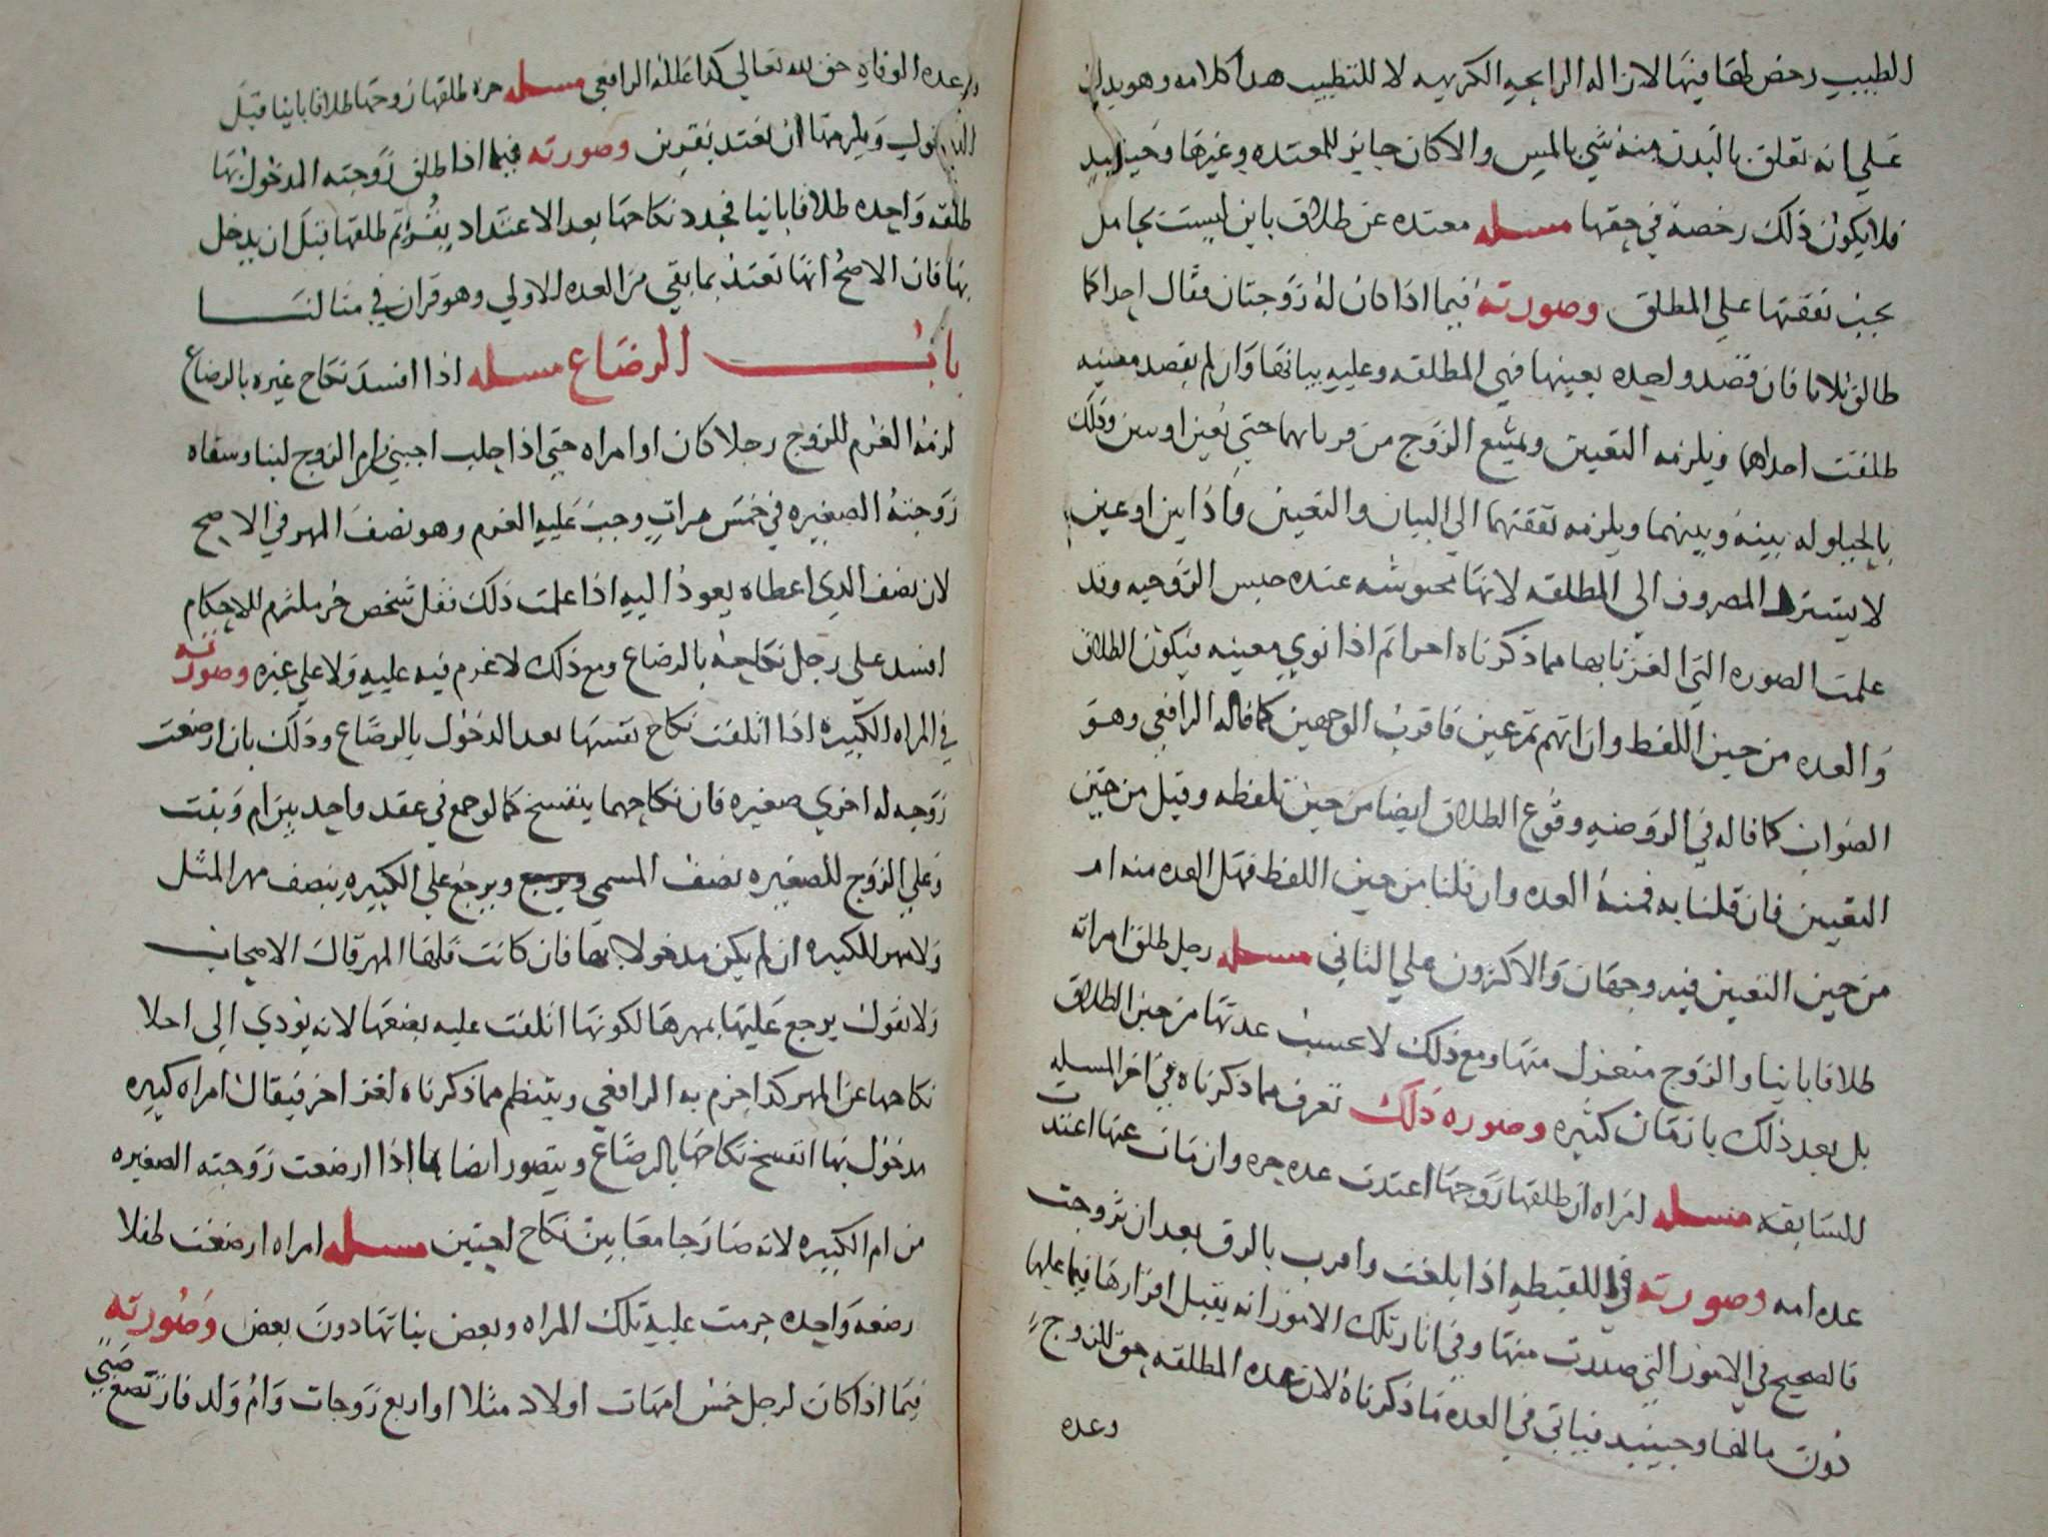 الطبيب رخص لها فيها لازاله الرايحه الكريهه لا للتطييب هذا كلامه وهو يدل
علي انه تعلق بالبدن منه شي بالمس والا كان جايز للمعتده وغيرها وحينيد
فلا يكون ذلك رخصة في حقها مسله معتده عن طلاق باين ليست بحامل
يجب نفقتها علي المطلق وصورته فيما اذا كان له زوجتان فقال احداكما
طالق ثلاثا فان قصد واحده بعينها فهي المطلقه وعليه بيانها وان لم يقصد معينه
طلقت احداهما ويلزمه التعيين ويمنع الزوج من قربانهما حتي يعين او يبين وذلك
بالحيلوله بينه وبينهما ويلزمه نفقتهما الي البيان والتعيين واذا بين او عين
لا يسترد المصروف الي المطلقه لانها محبوسه عنده حبس الزوجيه وقد
علمت الصوره التي الغزنا بها مما ذكرناه اخرا ثم اذا نوي معينه فيكون الطلاق
والعده من حين اللفظ وان ابهم ثم عين فاقرب الوجهين كما قاله الرافعي وهو
الصواب كما قاله في الروضه وقوع الطلاق ايضا من حين تلفظه وقيل من حين
التعيين فان قلنا به فمنه العده وان قلنا من حين اللفظ فهل العده منه ام
من حين التعيين فيه وجهان والاكثرون علي الثاني مسله رجل طلق امراته
طلاقا باينا والزوج منعزل منها ومع ذلك لا تحسب عدتها من حين الطلاق
بل بعد ذلك بازمان كثيره وصوره ذلك تعرف مما ذكرناه في اخر المسله
السابقه مسله امراه ان طلقها زوجها اعتدت عده حره وان مات عنها اعتدت
عده امه وصورته في اللقيطه اذا بلغت واقرت بالرق بعد ان تزوجت
فالصحيح في الامور التي صدرت منها وفي اثار تلك الامور انه يقبل اقرارها فيما عليها
دون مالها وحينيد فياتي في العده ما ذكرناه لان عده المطلقه حق للزوج
وعده
وعده الوفاه حق لله تعالي كذا علله الرافعي مسله حره طلقها زوجها طلاقا باينا قبل
الدخول ويلزمها ان تعتد بقرين وصورته فيما اذا طلق زوجته المدخول بها
طلقه واحده طلاقا باينا فجدد نكاحها بعد الاعتداد بقرء ثم طلقها قبل ان يدخل
بها فان الاصح انها تعتد بما بقي من العده الاولي وهو قران في مثالنا
باب الرضاع مسله اذا افسد نكاح غيره بالرضاع
لزمه الغرم للزوج رجلا كان او امراه حتي اذا حلب اجنبي من ام الزوج لبنا وسقاه
زوجته الصغيره في خمس مرات وجب عليه الغرم وهو نصف المهر في الاصح
لان نصف الذي اعطاه يعود اليه اذا علمت ذلك فقل شخص حر ملتزم للاحكام
افسد علي رجل نكاحه بالرضاع ومع ذلك لا غرم فيه عليه ولا علي غيره وصورته
في المراه الكبيره اذا اتلفت نكاح نفسها بعد الدخول بالرضاع وذلك بان ارضعت
زوجه له اخري صغيره فان نكاحهما ينفسخ كما لو جمع في عقد واحد بين ام وبنت
وعلي الزوج للصغيره نصف المسمي ويرجع علي الكبيره بنصف مهر المثل
ولا مهر للكبيره ان لم يكن مدخولا بها فان كانت فلها المهر قال الاصحاب
ولا نقول يرجع عليها بمهرها لكونها اتلفت عليه بضعها لانه يودي الي اخلا
نكاحها عن المهر كذا جزم به الرافعي وينتظم مما ذكرناه لغز اخر فيقال امراه كبيره
مدخول بها انفسخ نكاحها بالرضاع ويتصور ايضا اذا ارضعت زوجته الصغيره
من ام الكبيره لانه صار جامعا بين نكاح اختين مسله امراه ارضعت طفلا
رضعه واحده حرمت عليه تلك المراه وبعض بناتها دون بعض وصورته
فيما اذا كان لرجل خمس امهات اولاد مثلا او اربع زوجات وام ولد فارتضع صبي